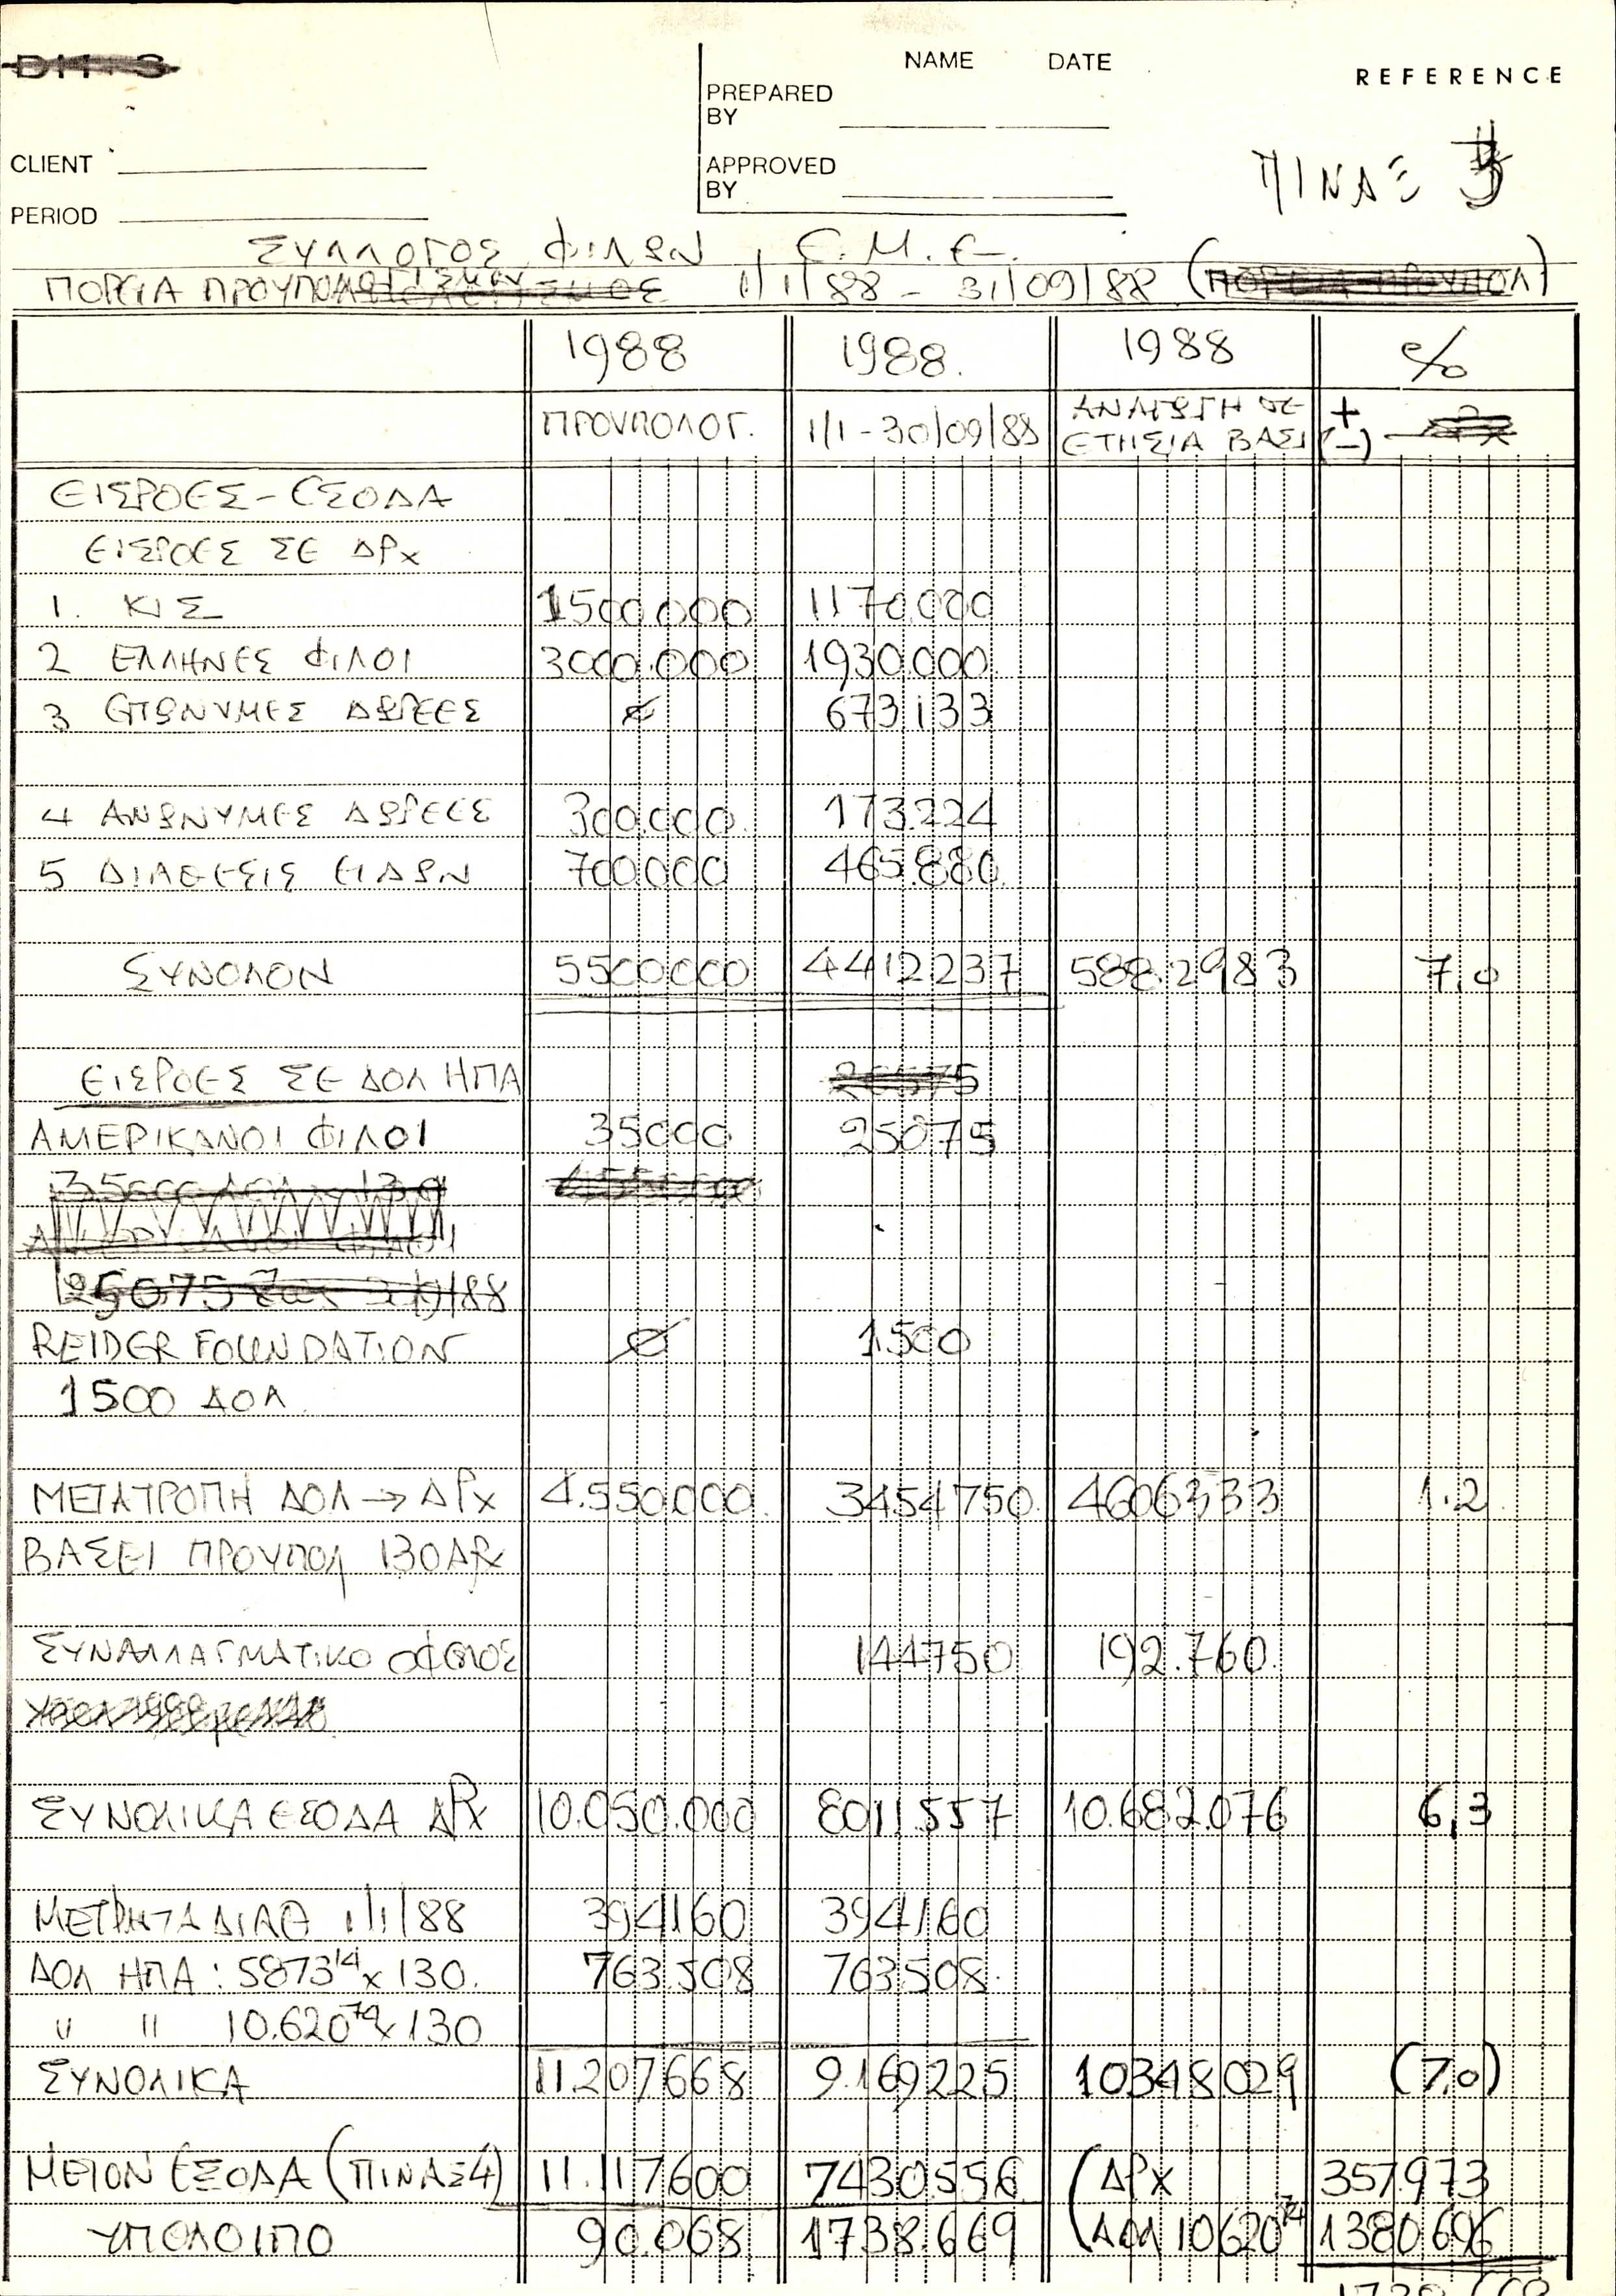 NAME DATE
REFERENCE
PREPARED
BY
CLIENT
APPROVED
BY
ΠΙΝΑΞ
PERIOD
ΣΥΛΛΟΓΟΣ ΦΙΛΩΝ Ε.Μ.Ε.
ΠΟΡΕΙΑ ΠΡΟΥΠΟΛΟΓΙΣΜΟΥ 1/1/88 - 31/09/88
1988 1988. 1988 %
ΠΡΟΥΠΟΛΟΓ. 1/1-30/09/88 ΑΝΑΓΩΓΗ ΣΕ ΕΤΗΣΙΑ ΒΑΣΙ + (-)
ΕΙΣΡΟΕΣ-ΕΣΟΔΑ
ΕΙΣΡΟΕΣ ΣΕ ΔΡΧ
1. ΚΙΣ 1500.000 1170.000
2 ΕΛΛΗΝΕΣ ΦΙΛΟΙ 3000.000 1930.000
3 ΕΠΩΝΥΜΕΣ ΔΩΡΕΕΣ ∅ 673133
4 ΑΝΩΝΥΜΕΣ ΔΩΡΕΕΣ 300.000 173.224
5 ΔΙΑΘΕΣΙΣ ΕΙΔΩΝ 700.000 465.880
ΣΥΝΟΛΟΝ 5500000 4412237 588.2983 7,0
ΕΙΣΡΟΕΣ ΣΕ ΔΟΛ ΗΠΑ
ΑΜΕΡΙΚΑΝΟΙ ΦΙΛΟΙ 35000 25075
25075 88
REIDER FOUNDATION ∅ 1.500
1500 ΔΟΛ.
ΜΕΤΑΤΡΟΠΗ ΔΟΛ → ΔΡΧ 4.550.000 3454750 4606333 1.2
ΒΑΣΕΙ ΠΡΟΥΠΟΛ 130 ΔΡΧ
ΣΥΝΑΛΛΑΓΜΑΤΙΚΟ ΟΦΕΛΟΣ 144750 192.760
ΣΥΝΟΛΙΚΑ ΕΣΟΔΑ ΔΡΧ 10.050.000 8011557 10.682.076 6,3
ΜΕΤΡΗΤΑ ΔΙΑΘ 1/1/88 394160 394160
ΔΟΛ ΗΠΑ: 5873¹⁴ x 130. 763.508 763508
" " 10.620⁷⁴ x 130
ΣΥΝΟΛΙΚΑ 11.207668 9.169225 10348029 (7.0)
ΜΕΙΟΝ ΕΞΟΔΑ (ΠΙΝΑΞ4) 11.117600 7430.556 (ΔΡΧ 357973
ΥΠΟΛΟΙΠΟ 90.068 1738.669 ΔΟΛ 10620⁷⁴ 1380.696